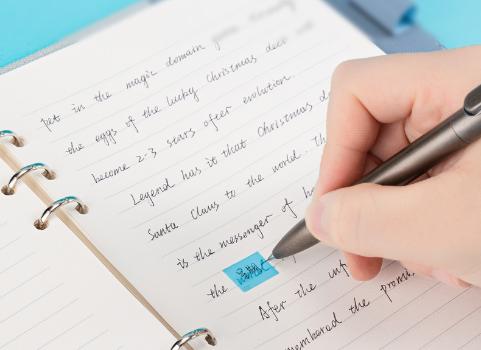 pet in the magic domain
the eggs of the lucky Christmas deer
become 2-3 stars after evolution.
Legend has it that Christmas d
Santa Claus to the world. Th
is the messenger of h
the
After the inf
membered the promi